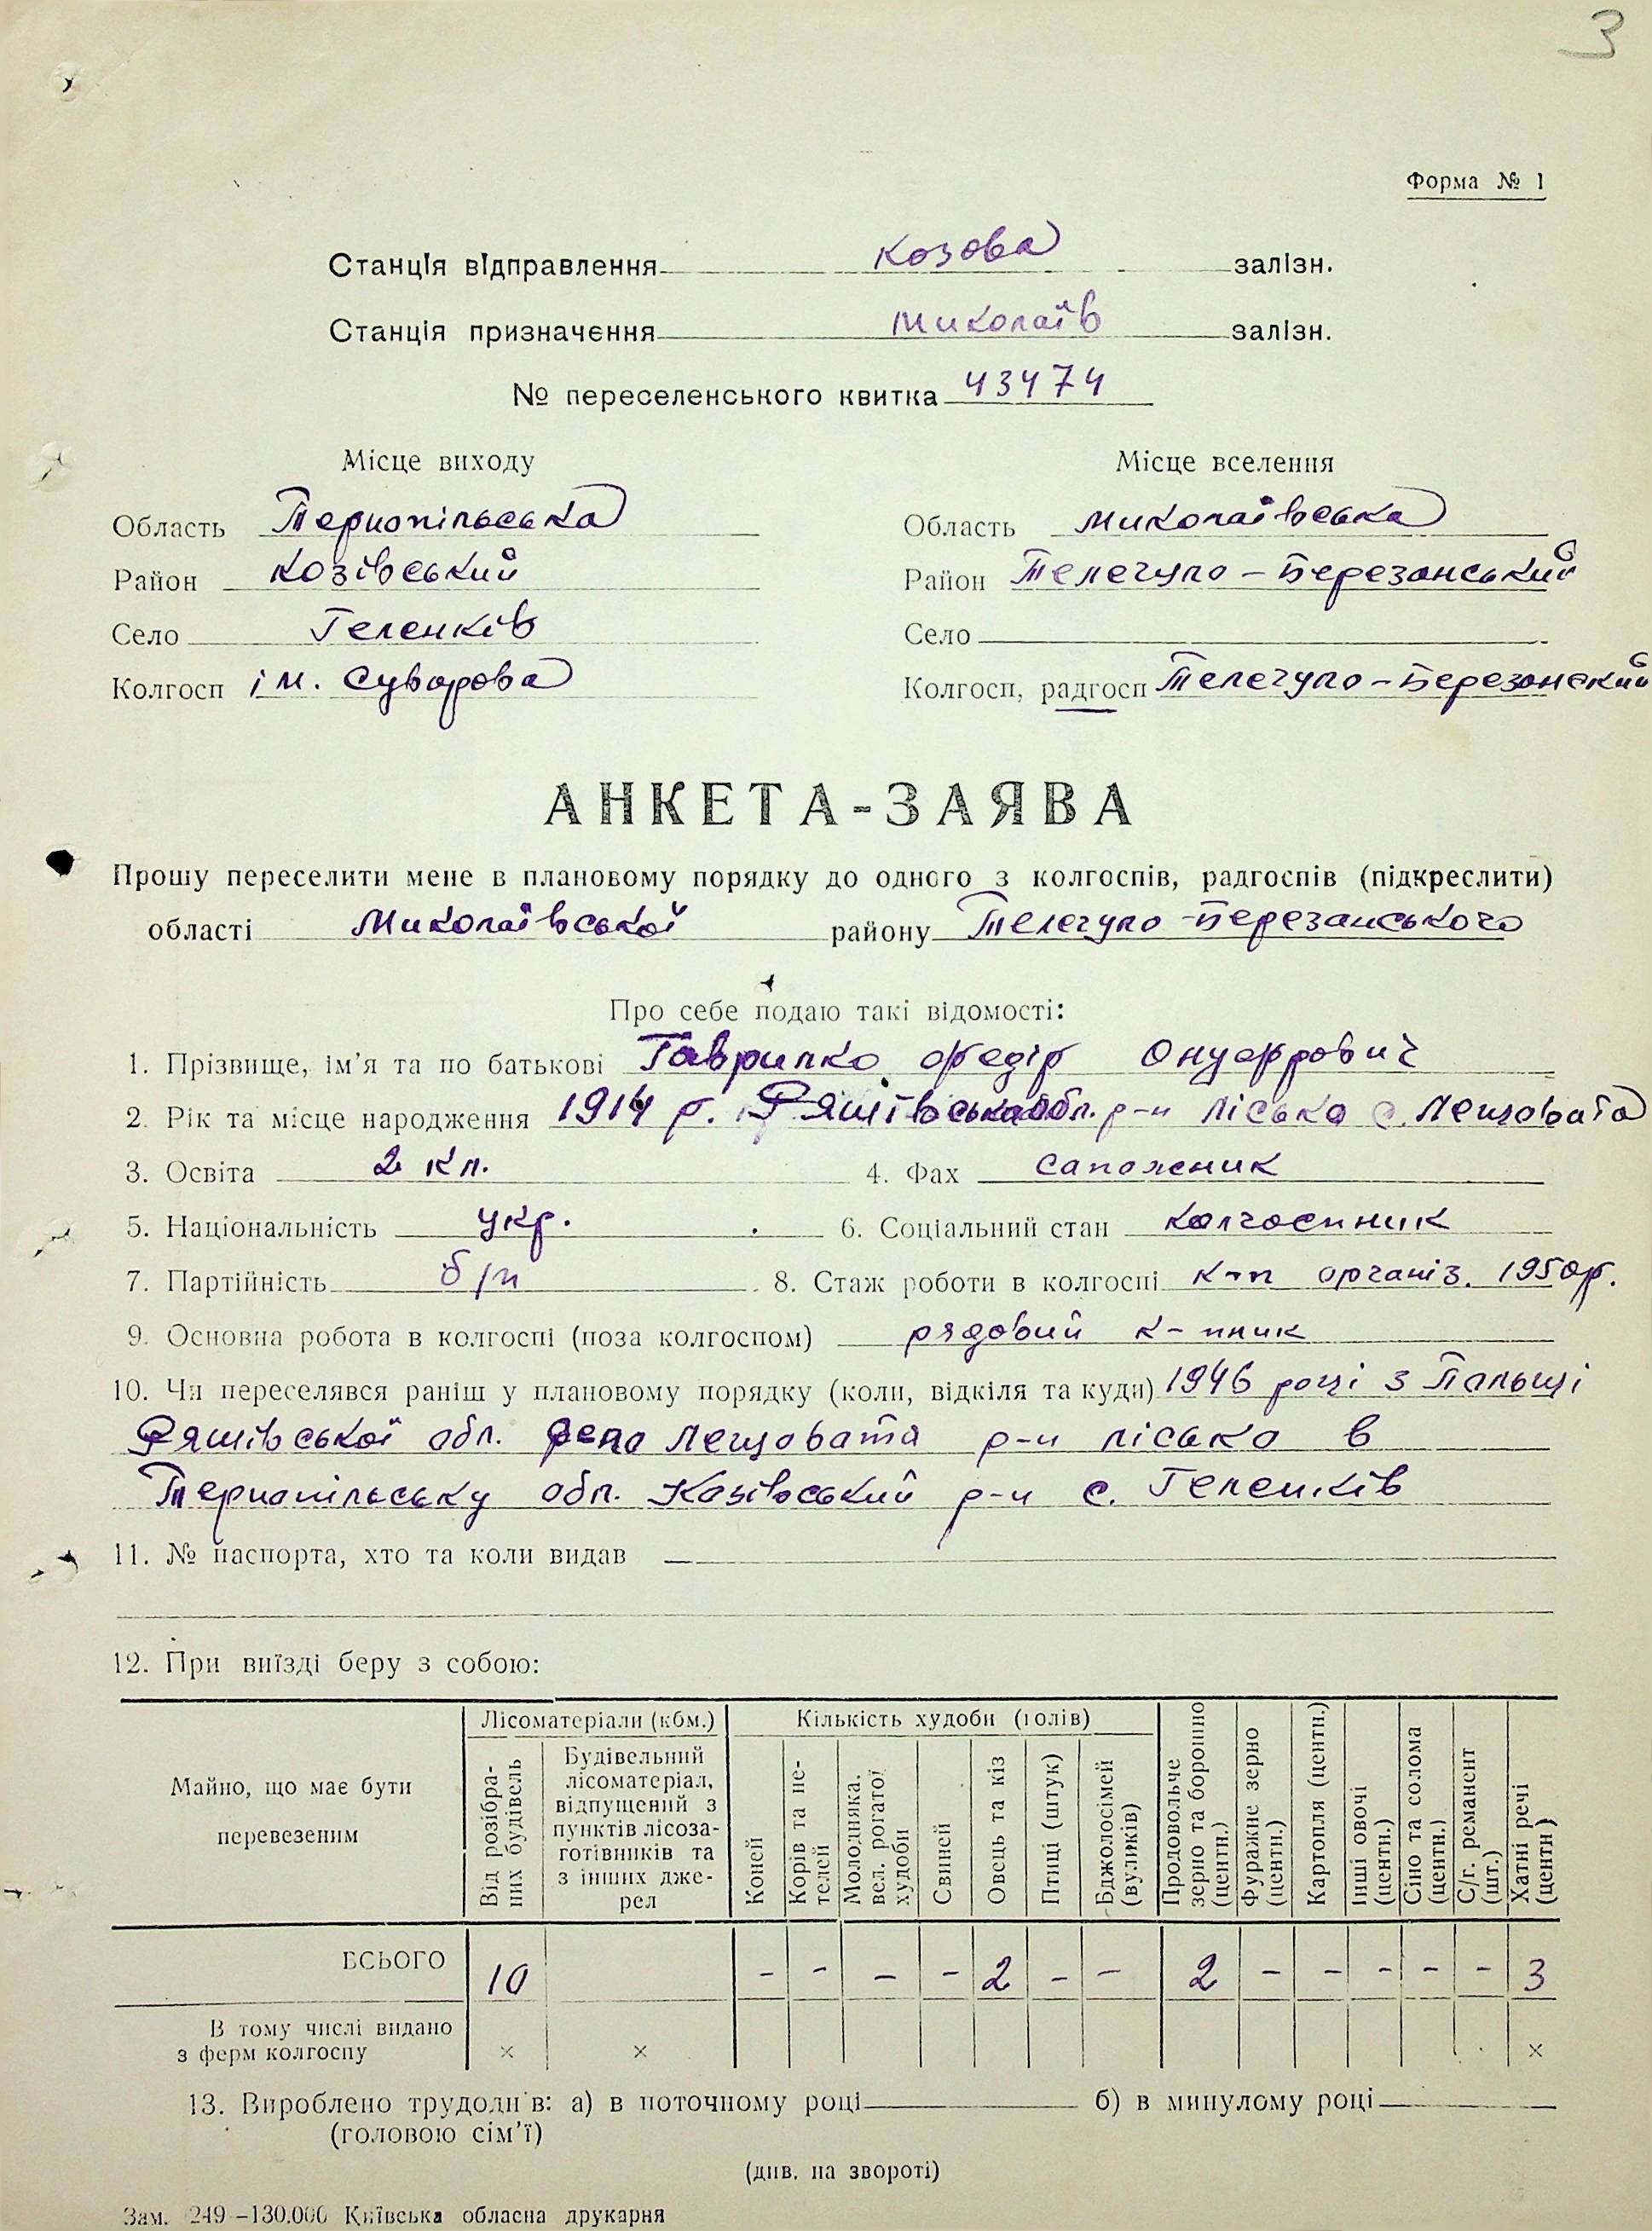 3
Форма № 1
Станція відправлення Козова залізн.
Станція призначення Миколаїв залізн.
№ переселенського квитка 43474
Місце виходу Місце вселення
Область Тернопільська Область Миколаївська
Район Козівський Район Телегуло-Березанський
Село Геленків Село
Колгосп ім. Суворова Колгосп, радгосп Телегуло-Березанский
АНКЕТА-ЗАЯВА
Прошу переселити мене в плановому порядку до одного з колгоспів, радгоспів (підкреслити)
області Миколаївської району Телегуло-Березанського
Про себе подаю такі відомості:
1. Прізвище, ім'я та по батькові Гаврилко Федір Онуфрович
2. Рік та місце народження 1914 р. Ряшівська обл. р-н Лісько с. Лещовата
3. Освіта 2 кл. 4. Фах сапожник
5. Національність укр. 6. Соціальний стан колгоспник
7. Партійність б/п 8. Стаж роботи в колгоспі к-п організ. 1950 р.
9. Основна робота в колгоспі (поза колгоспом) рядовий к-пник
10. Чи переселявся раніш у плановому порядку (коли, відкіля та куди) 1946 році з Польщі
Ряшівської обл. село Лещовата р-н Лісько в
Тернопільську обл. Козівський р-н с. Геленків
11. № паспорта, хто та коли видав
12. При виїзді беру з собою:
Майно, що має бути перевезеним
Лісоматеріали (кбм.) Кількість худоби (голів)
Від розібраних будівель
Будівельний лісоматеріал, відпущений з пунктів лісозаготівників та з інших джерел
Коней
Корів та нетелей
Молодняка, вел. рогатої худоби
Свиней
Овець та кіз
Птиці (штук)
Бджолосімей (вуликів)
Продовольче зерно та борошно (центн.)
Фуражне зерно (центн.)
Картопля (центн.)
Інші овочі (центн.)
Сіно та солома (центн.)
С/г. реманент (шт.)
Хатні речі (центн)
ВСЬОГО 10 - - - - 2 - - 2 - - - - - 3
В тому числі видано
з ферм колгоспу × × ×
13. Вироблено трудоднів: а) в поточному році б) в минулому році
(головою сім'ї)
(див. на звороті)
Зам. 249—130.000 Київська обласна друкарня